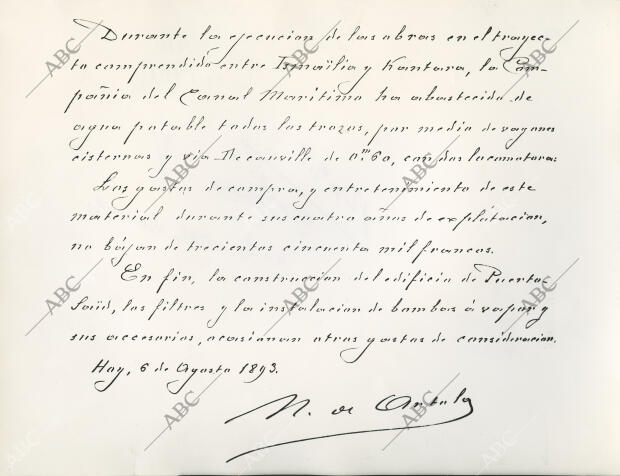 Durante la ejecucion de las obras en el trayec-
to comprendido entre Ismaïlia y Kantara, la Com-
pañia del Canal Maritimo ha abastecido de
agua potable todos los trozos, por medio de vagones
cisternas y via Decauville de 0m60, con dos locomotoras.
Los gastos de compra, y entretenimiento de este
material durante sus cuatro años de explotacion,
no bájan de trecientos cincuenta mil francos.
En fin, la construccion del edificio de Puerto
Saïd, los filtros y la instalacion de bombas á vapor y
sus accesorios, ocasionan otros gastos de consideracion.
Hoy, 6 de Agosto 1893.
N. de
ABC